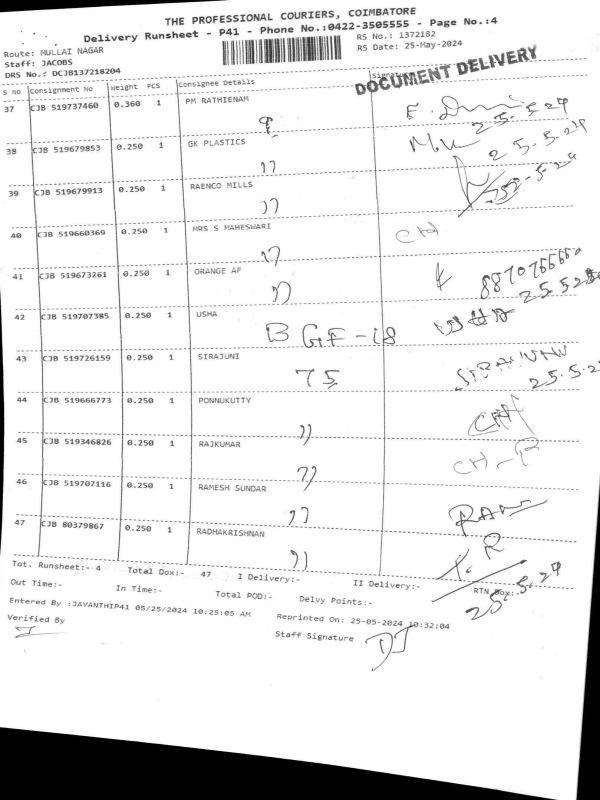 THE PROFESSIONAL COURIERS, COIMBATORE
Delivery Runsheet - P41 - Phone No.:0422-3505555 - Page No.:4
Route: MULLAI NAGAR
RS No.: 1372182
Staff: JACOBS
RS Date: 25-May-2024
DRS No.: DCJB137218204
DOCUMENT DELIVERY
S No Consignment No Weight PCS Consignee Details Signature
37 CJB 519737460 0.360 1 PM RATHIENAM
25-5-24
38 CJB 519679853 0.250 1 GK PLASTICS
25-5-24
39 CJB 519679913 0.250 1 RAENCO MILLS
40 CJB 519660369 0.250 1 MRS S MAHESWARI
CH
41 CJB 519673261 0.250 1 ORANGE AF
42 CJB 519707385 0.250 1 USHA
B GF-18
43 CJB 519726159 0.250 1 SIRAJUNI
75
44 CJB 519666773 0.250 1 PONNUKUTTY
45 CJB 519346826 0.250 1 RAJKUMAR
CH-R
46 CJB 519707116 0.250 1 RAMESH SUNDAR
47 CJB 80379867 0.250 1 RADHAKRISHNAN
25-5-24
Tot. Runsheet:- 4 Total Dox:- 47 I Delivery:- II Delivery:- RTN Dox:-
Out Time:- In Time:- Total POD:- Delvy Points:-
Entered By :JAYANTHIP41 05/25/2024 10:25:05 AM Reprinted On: 25-05-2024 10:32:04
Verified By Staff Signature